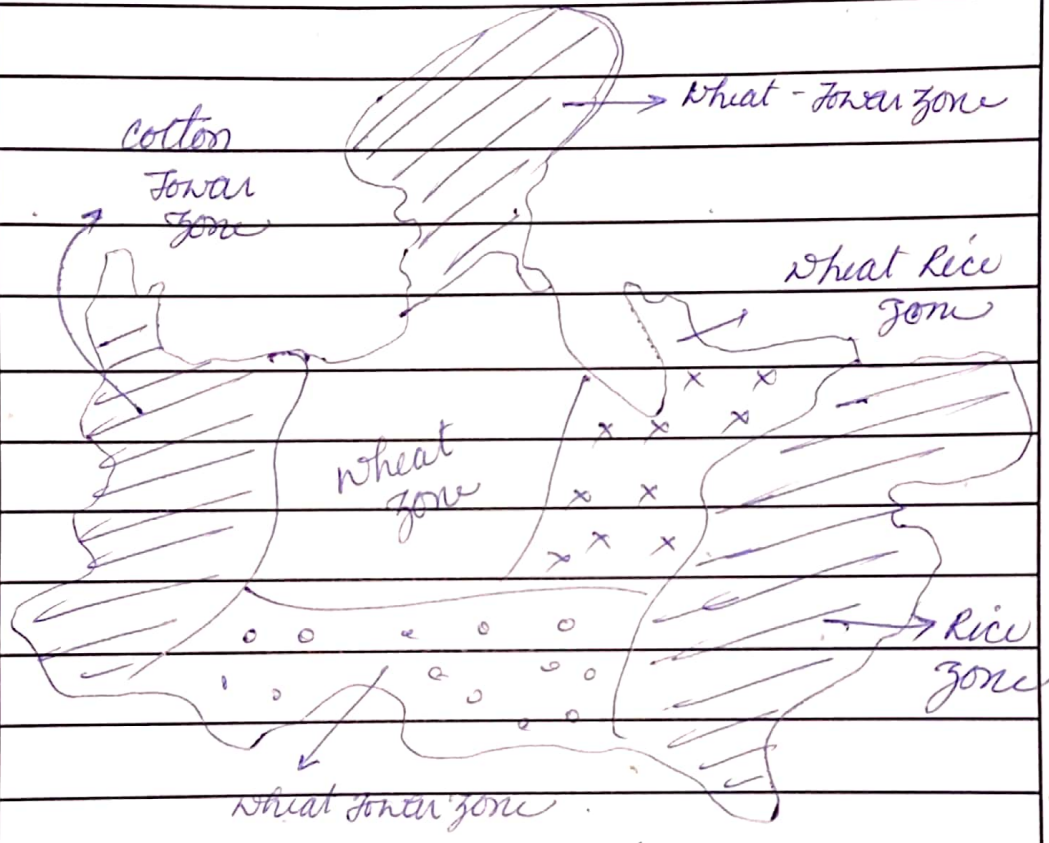 Wheat - Jowar zone
Cotton
Jowar
zone
Wheat Rice
zone
Wheat
zone
Rice
zone
Wheat Jowar zone